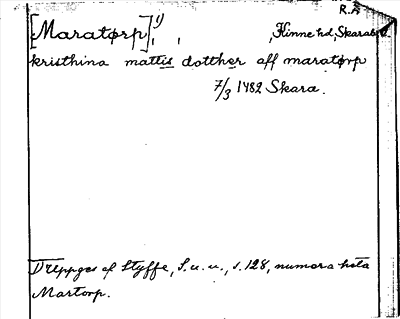 R.A
[Maratørp],¹) , , Kinne hd, Skarab. l.
kristhina mattis dotther aff maratørp
7/3 1482 Skara.
1) Uppges af Styffe, S. u. u., s. 128, numera heta
Martorp.